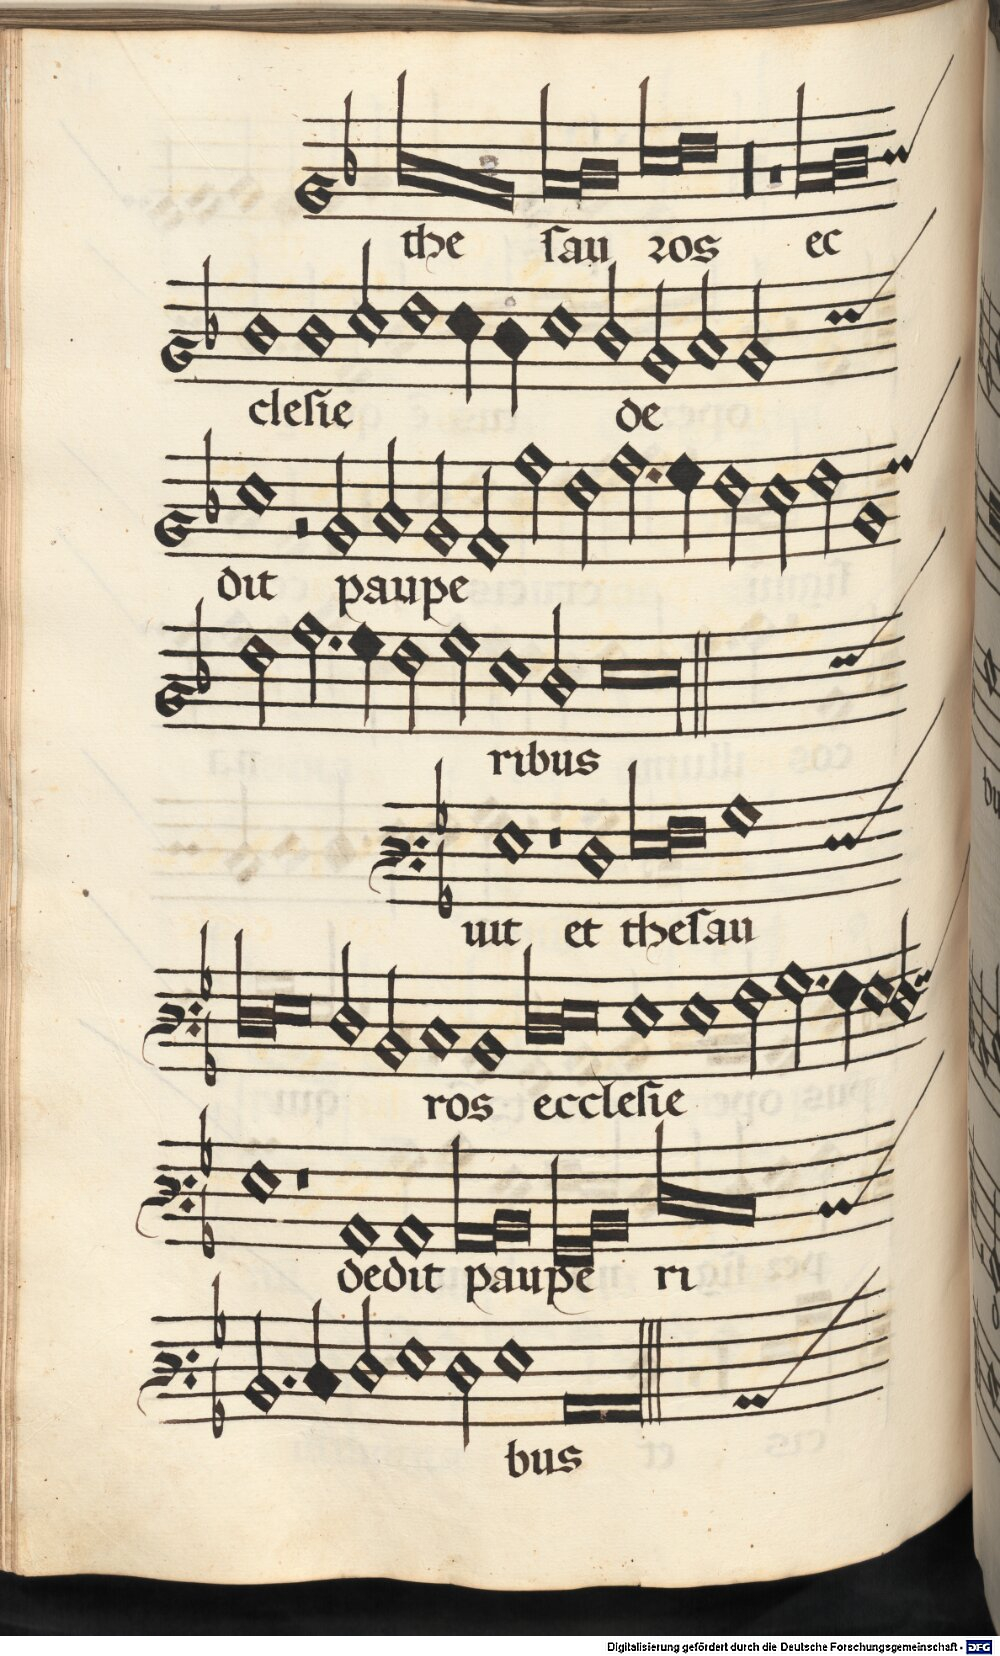 the ſau ros ec
cleſie de
dit paupe
ribus
uit et theſau
ros eccleſie
dedit paupe ri
bus
Digitalisierung gefördert durch die Deutsche Forschungsgemeinschaft - DFG